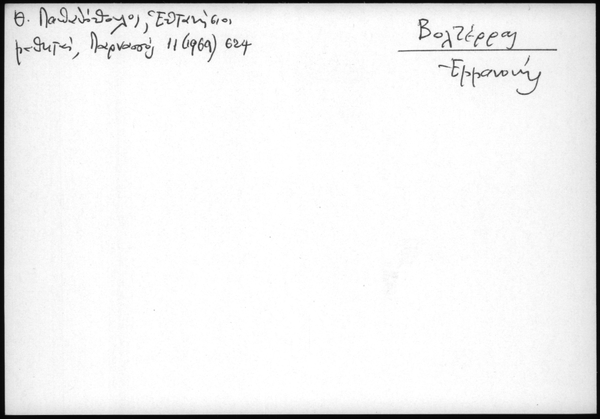 Θ. Παπαδόπουλος, Ἑπτανήσιοι
μαθηταί, Παρνασσός 11 (1969) 624
Βολτέρρας
-Ἐρμανουήλ